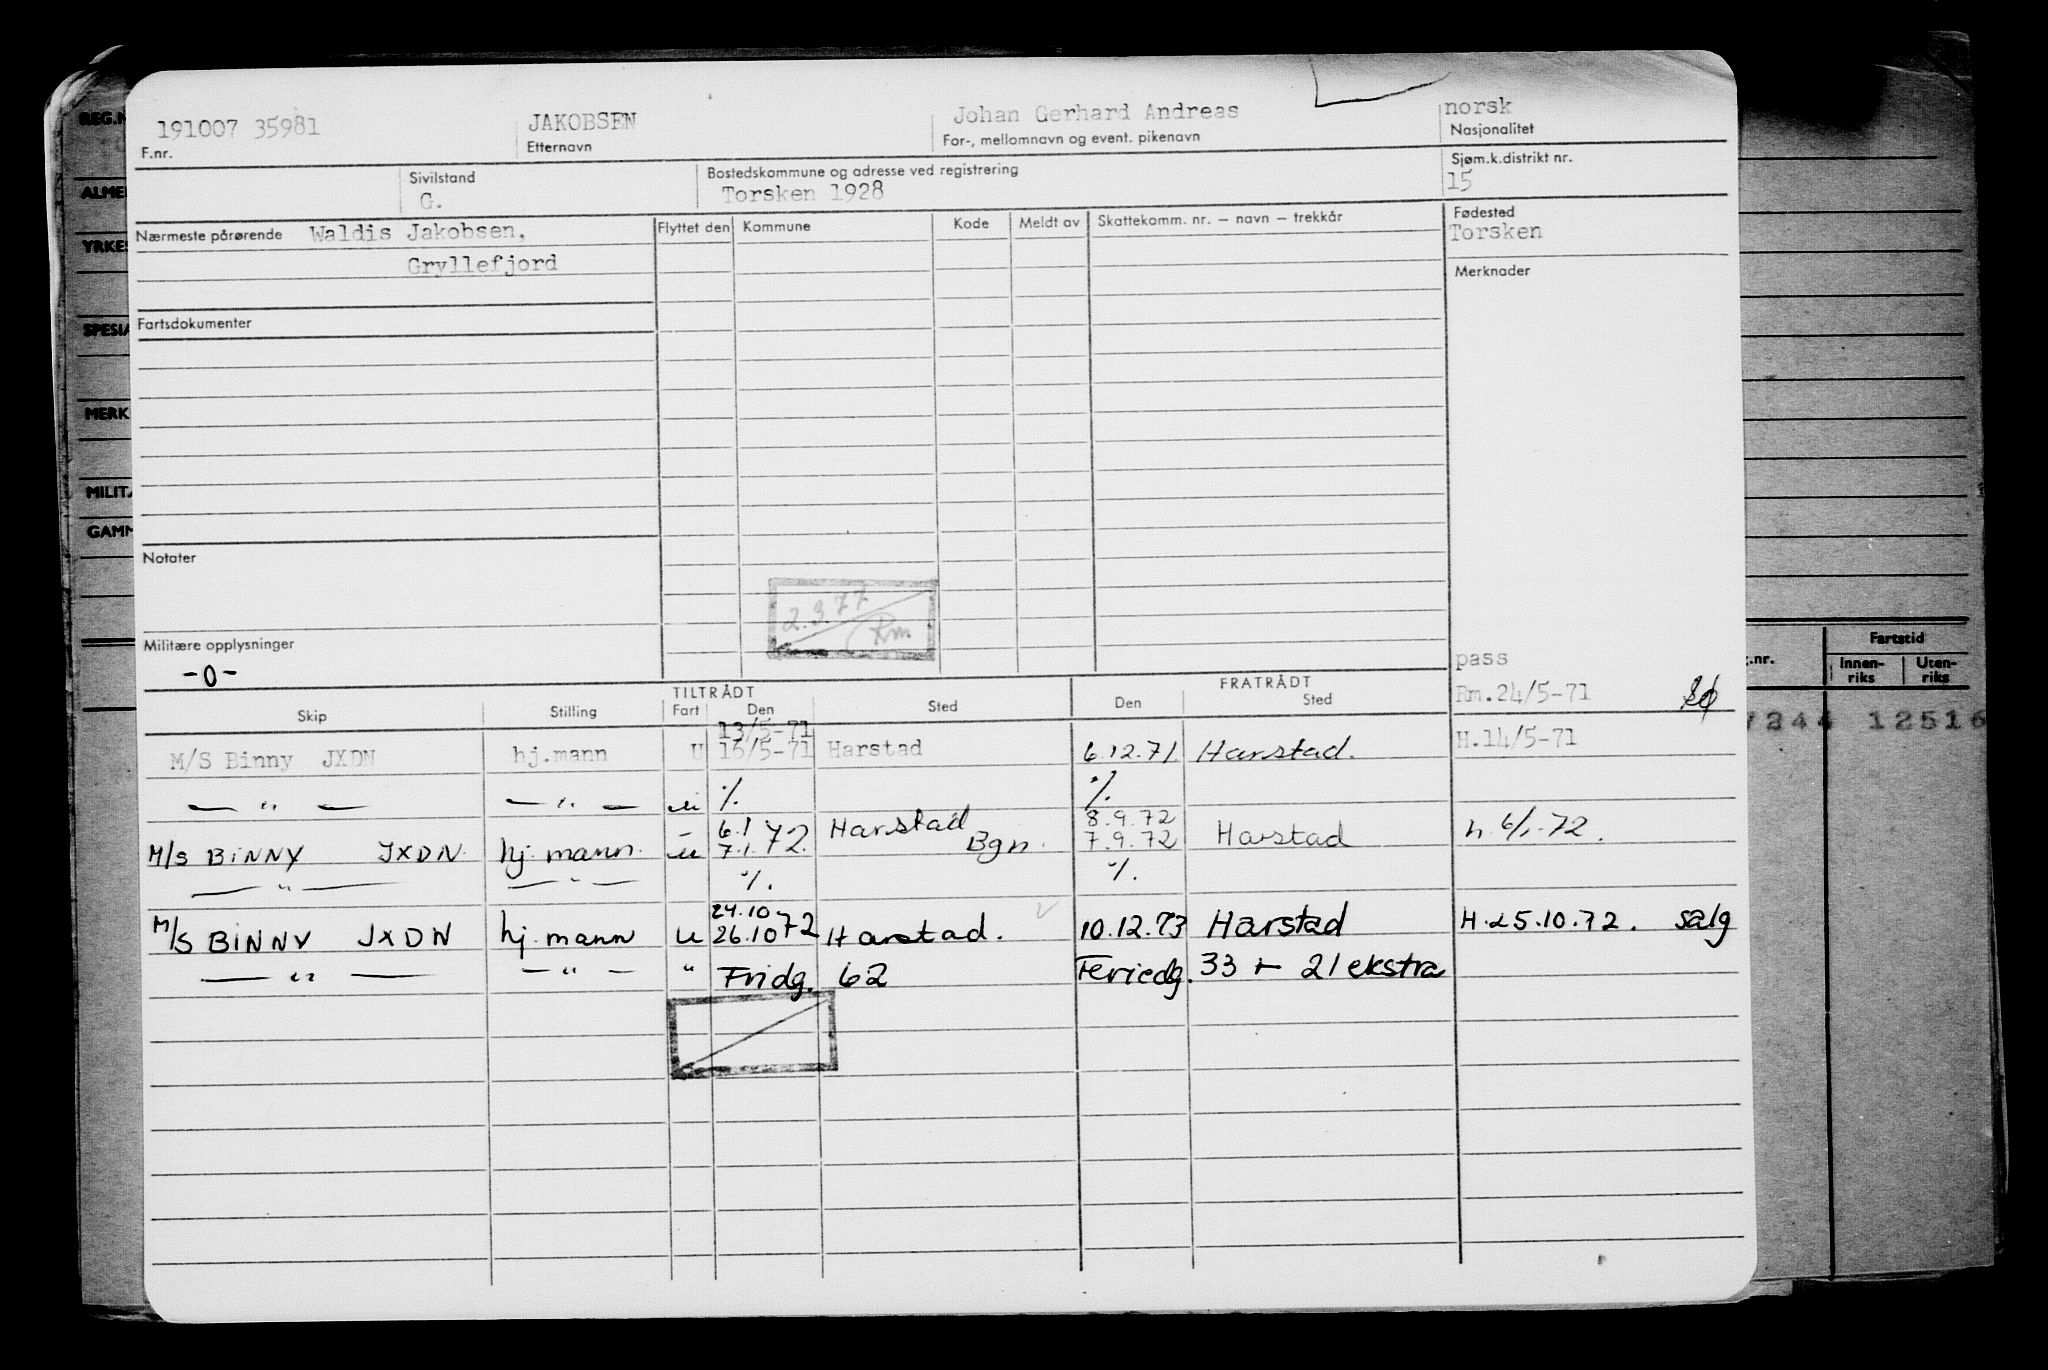 191007 35981 JAKOBSEN Johan Gerhard Andreas norsk
F.nr. Etternavn For-, mellomnavn og event. pikenavn Nasjonalitet
Sivilstand Bostedskommune og adresse ved registrering Sjøm.k.distrikt nr.
G. Torsken 1928 15
Nærmeste pårørende Waldis Jakobsen, Flyttet den Kommune Kode Meldt av Skattekomm. nr. — navn — trekkår Fødested
Torsken
Gryllefjord
Merknader
Fartsdokumenter
Notater
2.3.77
Rm
Militære opplysninger
-0-
pass
Rm.24/5-71
TILTRÅDT FRATRÅDT
Skip Stilling Fart Den Sted Den Sted
13/5-71
M/S Binny JXDN hj.mann U 16/5-71 Harstad 6.12.71 Harstad. H.14/5-71
— " — — " — u ٪. ٪.
6.1 Harstad 8.9.72
M/S BINNY JXDN. hj. mann. u 7.1.72. Bgn. 7.9.72 Harstad h. 6/1.72.
— " — — " — ٪. ٪.
24.10
M/S BINNY JXDN hj. mann u 26.10 72 Harstad. 10.12.73 Harstad H.25.10.72. salg
— " — — " — " Fridg. 62 Feriedg. 33 + 21 ekstra
REG.N
ALME
YRKES
SPESIA
MERK
MILITÆ
GAMM
g.nr. Fartstid
Innen-riks Uten-riks
7244 12516